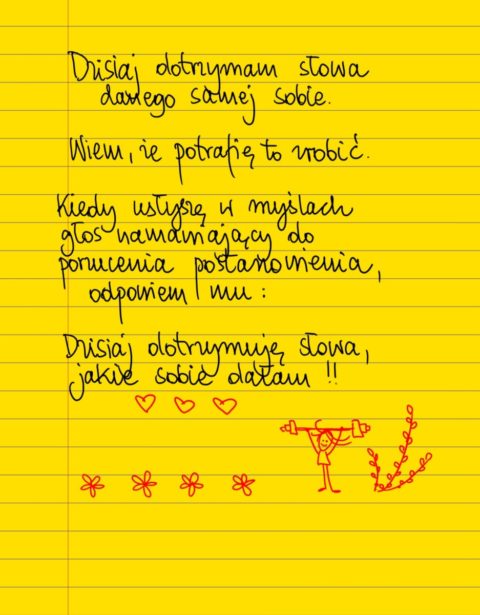 Dzisiaj dotrzymam słowa
danego samej sobie.
Wiem, że potrafię to zrobić.
Kiedy usłyszę w myślach
głos namawiający do
porzucenia postanowienia,
odpowiem mu:
Dzisiaj dotrzymuję słowa,
jakie sobie dałam!!